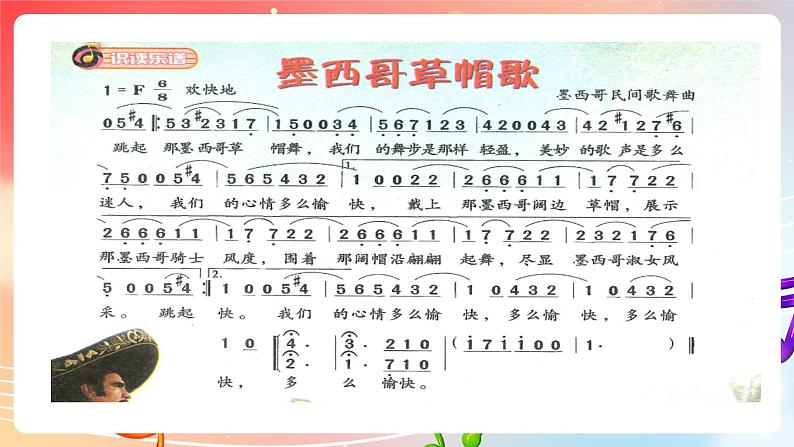 识读乐谱
墨西哥草帽歌
1 = F 6/8 欢快地 墨西哥民间歌舞曲
0 5 #4 ‖: 5 3 #2 3 1 7 | 1 5 0 0 3 4 | 5 6 7 1 2 3 | 4 2 0 0 4 3 | 4 2 #1 2 7 #6 |
跳起 那墨西哥草 帽舞，我们 的舞步是那样 轻盈，美妙 的歌声是多么
7 5 0 0 5 #4 | 5 6 5 4 3 2 | 1. 1 0 0 2 2 | 2 6 6 6 1 1 | 1 7 7 7 2 2 |
迷人，我们 的心情多么愉 快，戴上 那墨西哥阔边 草帽，展示
2 6 6 6 1 1 | 1 7 7 7 2 2 | 2 6 6 6 1 1 | 1 7 7 7 2 2 | 2 3 2 1 7 6 |
那墨西哥骑士 风度，围着 那阔帽沿翩翩 起舞，尽显 墨西哥淑女风
5 0 0 5 #4 :‖ 2. 1 0 0 5 #4 | 5 6 5 4 3 2 | 1 0 0 4 3 2 | 1 0 0 4 3 2 |
采。跳起 快。我们 的心情多么愉 快，多么愉 快，多么愉
1 0 2 · 3 · 2 1 0 | ( i 7 i i 0 0 | 1 · ) ‖
2 · 1 · 7 1 0
快，多 么 愉快。